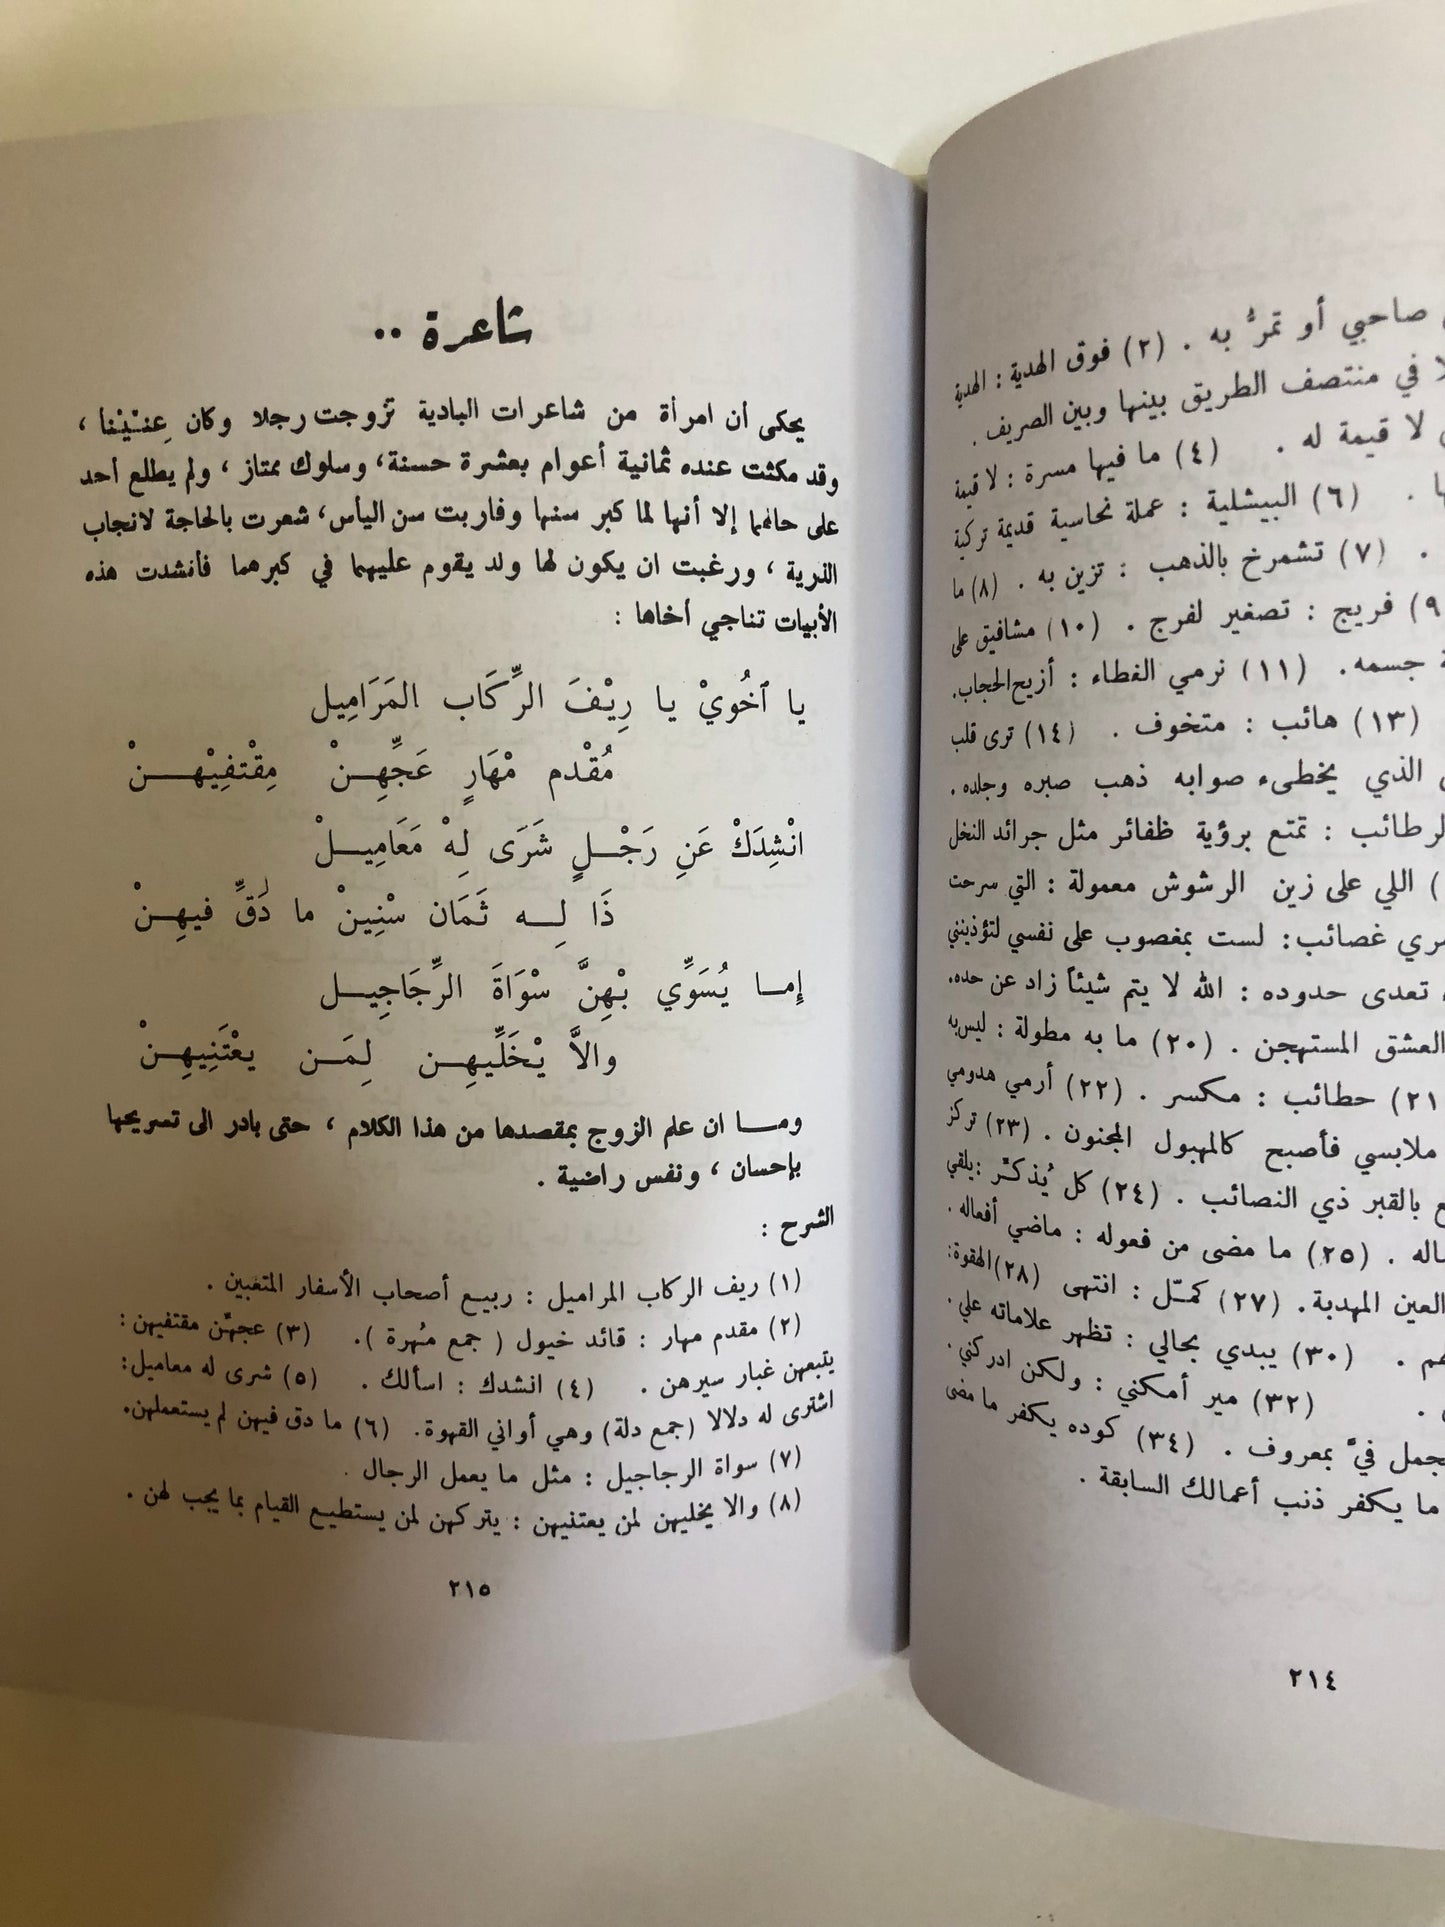 صاحبي أو تمرُّ به . (٢) فوق الهدية : الهدية
في منتصف الطريق بينها وبين الصريف .
لا قيمة له . (٤) ما فيها مسرة : لا قيمة
. (٦) البيشلية : عملة نحاسية قديمة تركية
. (٧) تشمرخ بالذهب : تزين به . (٨) ما
٩) فريج : تصغير لفرج . (١٠) مشافيق على
جسمه. (١١) نرمي الغطاء : أزيح الحجاب.
(١٣) هائب : متخوف . (١٤) ترى قلب
الذي يخطىء صوابه ذهب صبره وجلده .
الرطائب : تمتع برؤية ظفائر مثل جرائد النخل
) اللي على زين الرشوش معمولة : التي سرحت
غصائب : لست بمغصوب على نفسي لتؤذينني
تعدى حدوده : الله لا يتم شيئاً زاد عن حده.
العشق المستهجن . (٢٠) ما به مطولة : ليس به
٢١) حطائب : مكسر . (٢٢) أرمي هدومي
ملابسي فأصبح كالمهبول المجنون . (٢٣) تركز
بالقبر ذي النصائب . (٢٤) كل يُذكّر : يلقي
. (٢٥) ما مضى من فعوله : ماضي أفعاله .
العين المهدبة . (٢٧) كمّل : انتهى (٢٨) الهقوة :
. (٣٠) يبدي بحالي : تظهر علاماته علي .
. (٣٢) مير أمكني : ولكن ادركني .
فيَّ بمعروف . (٣٤) كوده يكفر ما مضى
ما يكفر ذنب أعمالك السابقة .
٢١٤
شاعرة ..
يحكى أن امرأة من شاعرات البادية تزوجت رجلا وكان عِنّيْناً ،
وقد مكثت عنده ثمانية أعوام بعشرة حسنة ، وسلوك ممتاز ، ولم يطلع أحد
على حالهما إلا أنها لما كبر سنها وقاربت سن اليأس، شعرت بالحاجة لانجاب
الذرية ، ورغبت ان يكون لها ولد يقوم عليهما في كبرهما فأنشدت هذه
الأبيات تناجي أخاها :
يا ٱخُويْ يا رِيْفَ الرِّكَاب المَرَامِيل
مُقْدم مْهَارٍ عَجِّهِنْ مِقْتفِيْهنْ
انْشِدَكْ عَنِ رَجْلٍ شَرَى لِهْ مَعَامِيلْ
ذَا لِه ثَمَان سْنِينْ ما دَقِّ فيهِنْ
إما يُسَوِّي بْهِنَّ سْوَاةَ الرِّجَاجِيل
والاَّ يْخَلِّيهِن لِمَن يعْتَنِيهِنْ
وما ان علم الزوج بمقصدها من هذا الكلام ، حتى بادر الى تسريحها
بإحسان ، ونفس راضية .
الشرح :
(١) ريف الركاب المراميل : ربيع أصحاب الأسفار المتعبين .
(٢) مقدم مهار : قائد خيول ( جمع مُهرة ). (٣) عجهّن مقتفيهن :
يتبعهن غبار سيرهن . (٤) انشدك : اسألك . (٥) شرى له معاميل :
اشترى له دلالا (جمع دلة) وهي أواني القهوة. (٦) ما دق فيهن لم يستعملهن.
(٧) سواة الرجاجيل : مثل ما يعمل الرجال .
(٨) والا يخليهن لمن يعتنيهن : يتركهن لمن يستطيع القيام بما يجب لهن .
٢١٥